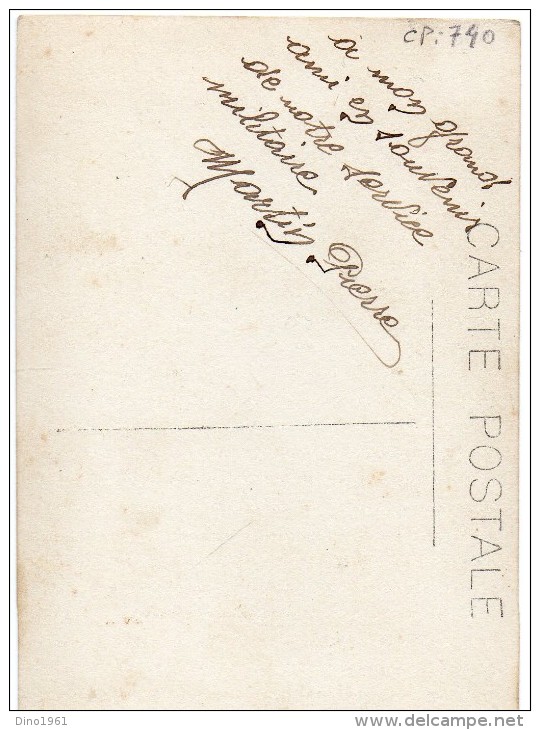 CP: 740
à mon grand
ami en souvenir
de notre service
militaire
Martin Pierre
CARTE POSTALE
Dino1961
delcampe.net